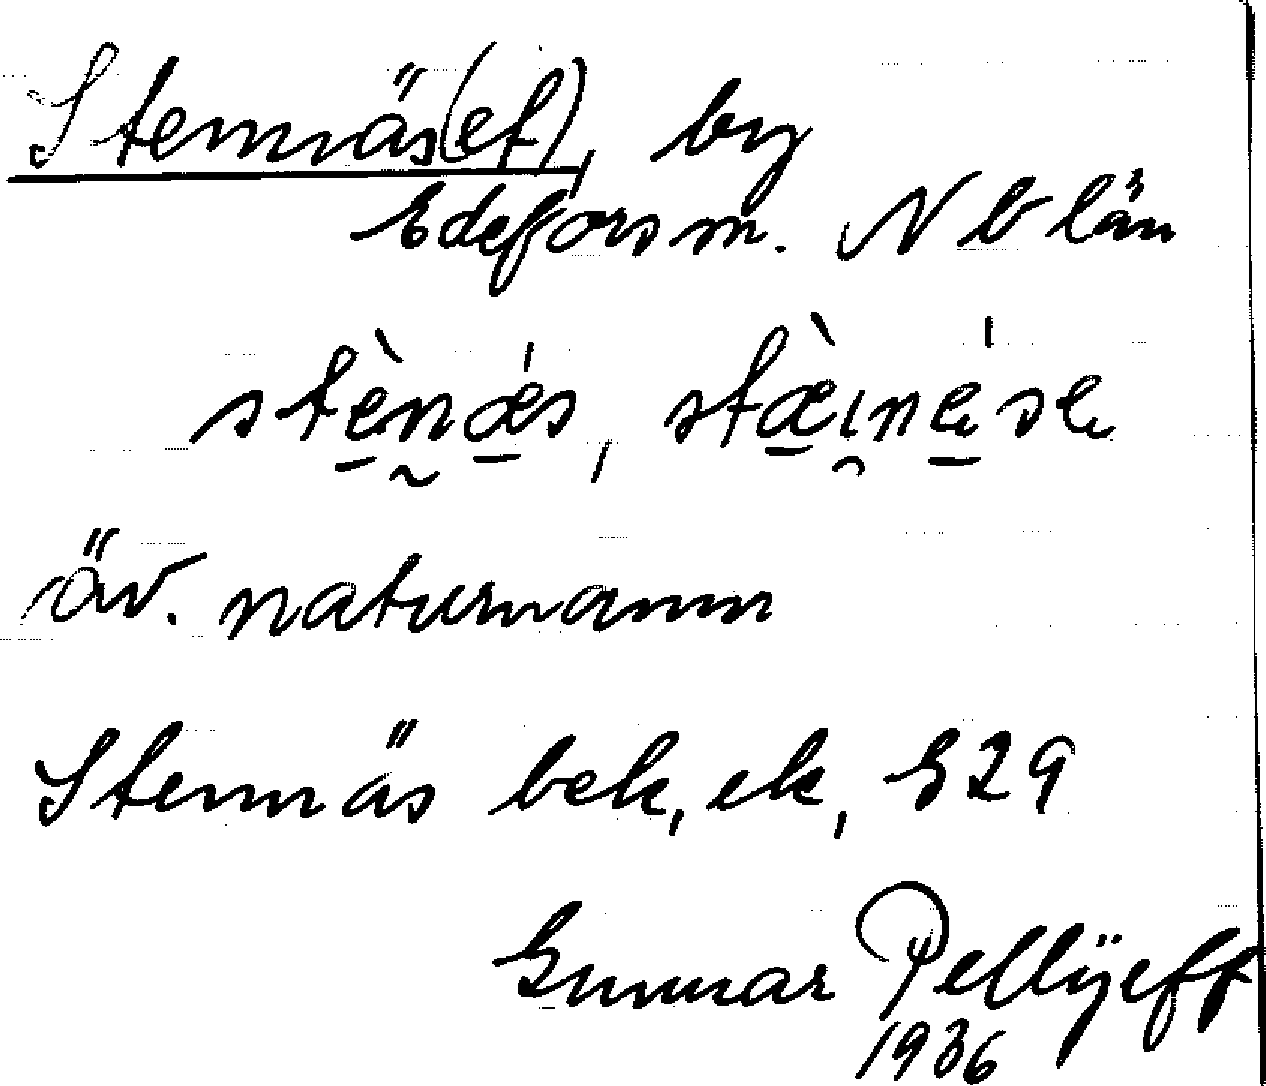 Stennäs(et), by
Edefors sn. Nb län
stènæ̀s, stæ̀inese
äv. naturnamn
Stennäs bek, ek, G29
Gunnar Pellijeff
1936